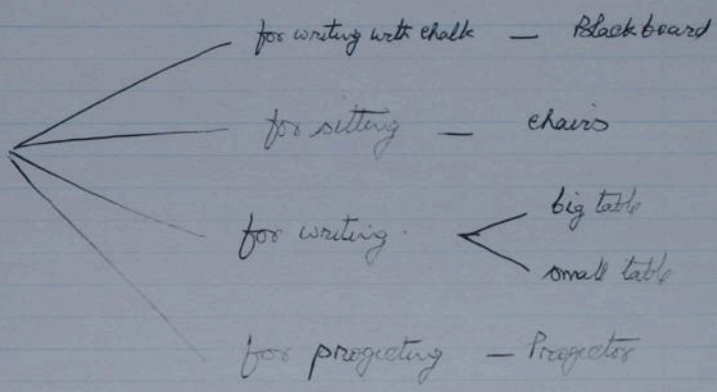 for writing with chalk — Blackboard
for sitting — chairs
for writing.
big table
small table
for progecting — Progector